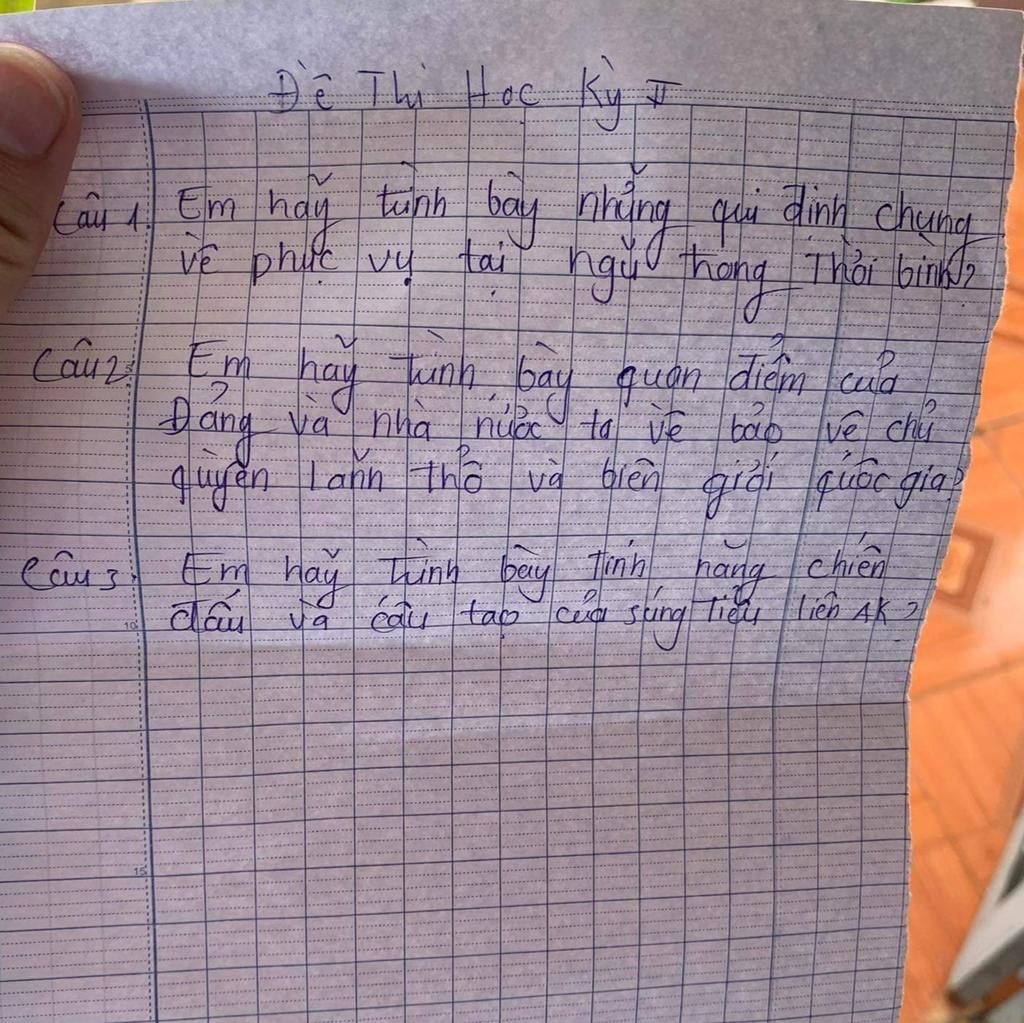 Đề Thi Học Kỳ II
Câu 1: Em hãy trình bày những qui định chung
về phục vụ tại ngũ trong Thời bình?
Câu 2: Em hãy trình bày quan điểm của
Đảng và nhà nước ta về bảo vệ chủ
quyền lãnh thổ và biên giới quốc gia?
Câu 3: Em hãy Trình bày Tính năng chiến
đấu và cấu tạo của súng Tiểu liên AK?
10
15